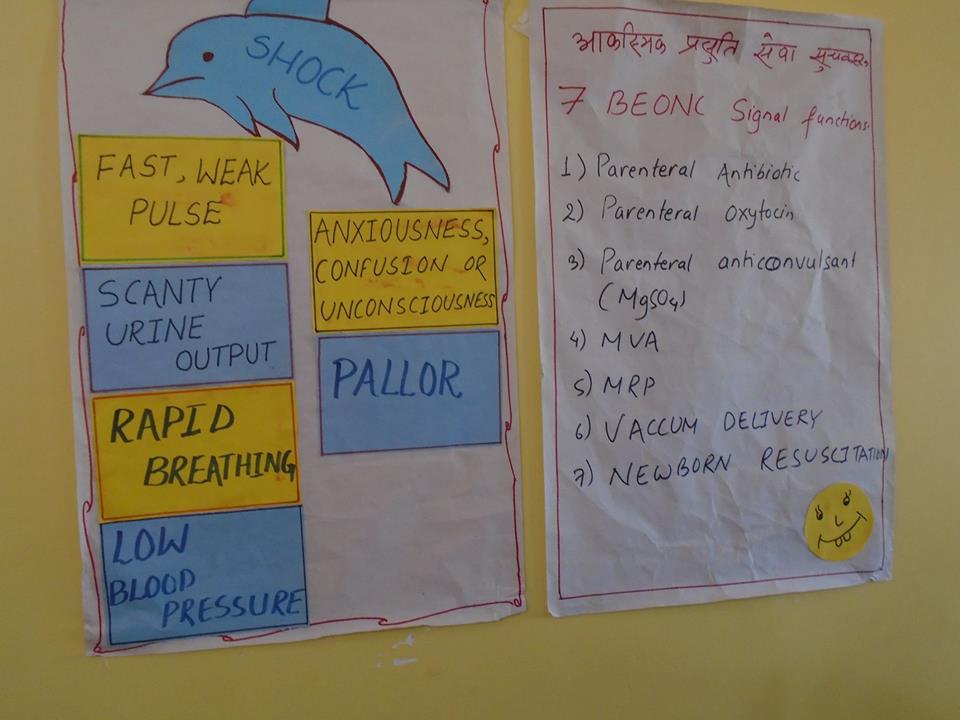 SHOCK
FAST, WEAK
PULSE
SCANTY
URINE
OUTPUT
RAPID
BREATHING
LOW
BLOOD
PRESSURE
ANXIOUSNESS,
CONFUSION OR
UNCONSCIOUSNESS
PALLOR
आकस्मिक प्रसुति सेवा
7 BEONC Signal functions.
1) Parenteral Antibiotic
2) Parenteral Oxytocin
3) Parenteral anticonvulsant
(MgSO4)
4) MVA
5) MRP
6) VACCUM DELIVERY
7) NEWBORN RESUSCITATION